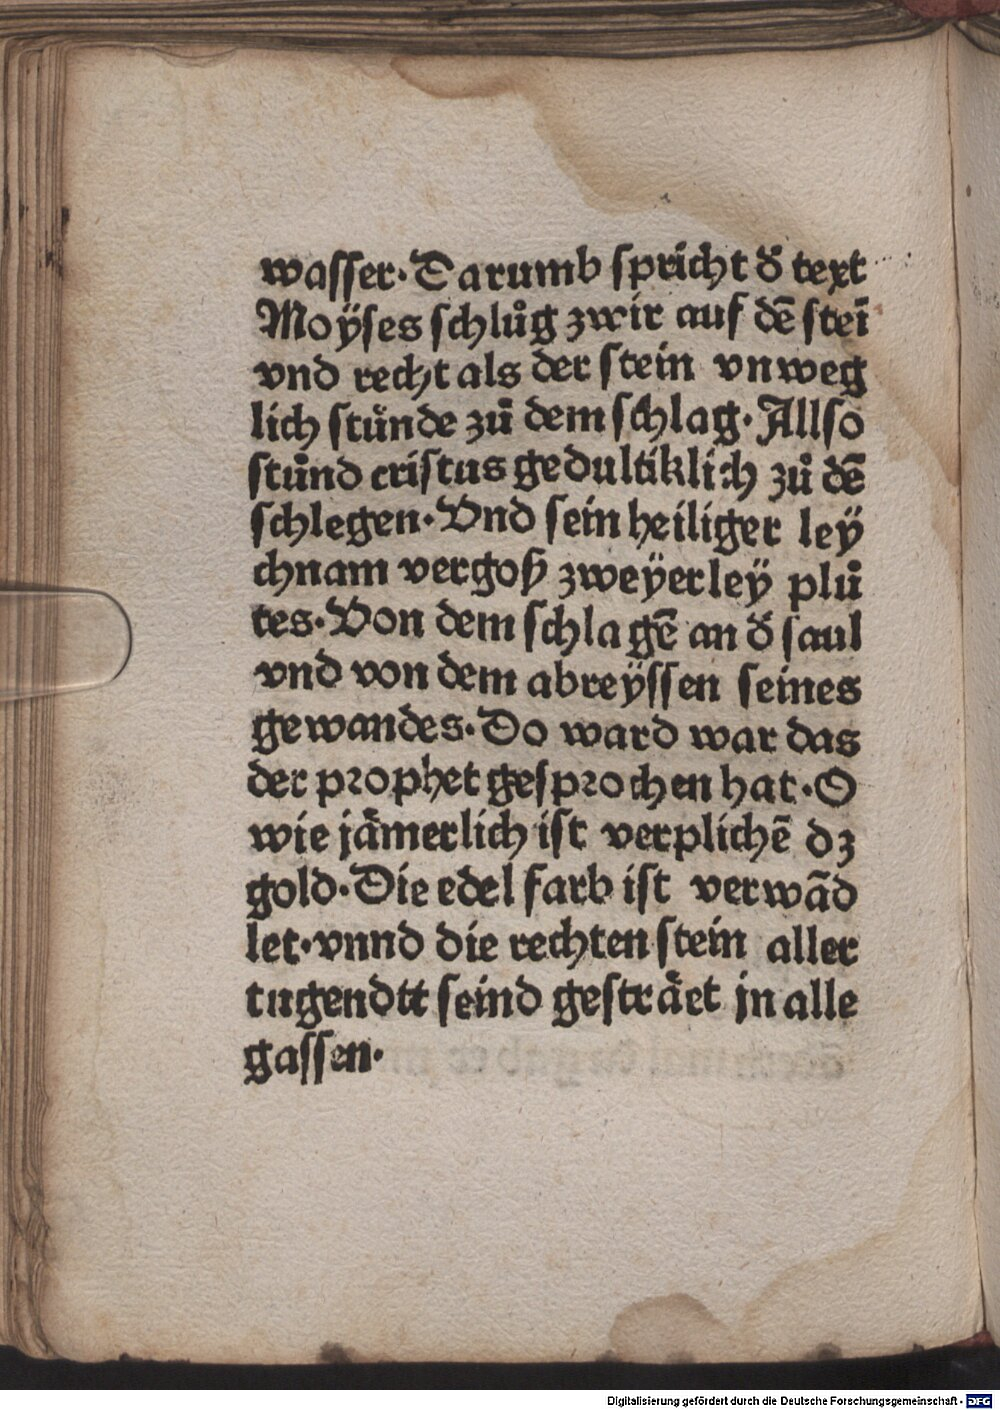 wasser. Darumb spricht đ text
Moÿses schlůg zwir auf dē stei̅
vnd recht als der stein vnweg
lich stůnde zů dem schlag. Allso
stůnd cristus gedultiklich zů dē
schlegen. Vnd sein heiliger leÿ
chnam vergoß zweÿerleÿ plů
tes. Von dem schlagē an đ saul
vnd von dem abreÿssen seines
gewandes. Do ward war das
der prophet gesprochen hat. O
wie jåmerlich ist verplichē dz
gold. Die edel farb ist verwād
let. vnnd die rechten stein aller
tugendtt seind gesträet jn alle
gassen.
Digitalisierung gefördert durch die Deutsche Forschungsgemeinschaft - DFG